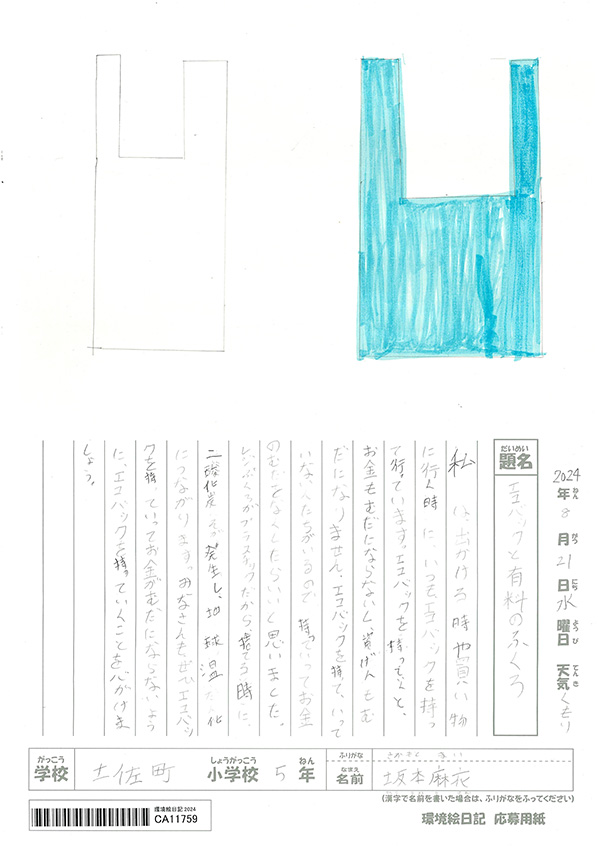 2024年8月21日水曜日 天気くもり
題名 エコバックと有料のふくろ
私は、出かける時や買い物
に行く時に、いつもエコバックを持っ
て行っています。エコバックを持っていくと、
お金もむだにならないし、資げんもむ
だになりません。エコバックを持って、いって
いない人たちがいるので、持っていってお金
のむだをなくしたらいいと思いました。
プラスチックだから捨てる時に、
二酸化炭そが発生し、地球温だん化
につながります。みなさんもぜひエコバッ
クを持っていってお金がむだにならないよう
に、エコバックを持っていくことを心がけま
しょう。
がっこう
学校 土佐町 小学校 5年
しょうがっこう
ねん
ふりがな さかもと まい
なまえ
名前 坂本麻衣
(漢字で名前を書いた場合は、ふりがなをふってください)
環境絵日記 2024
CA11759
環境絵日記 応募用紙